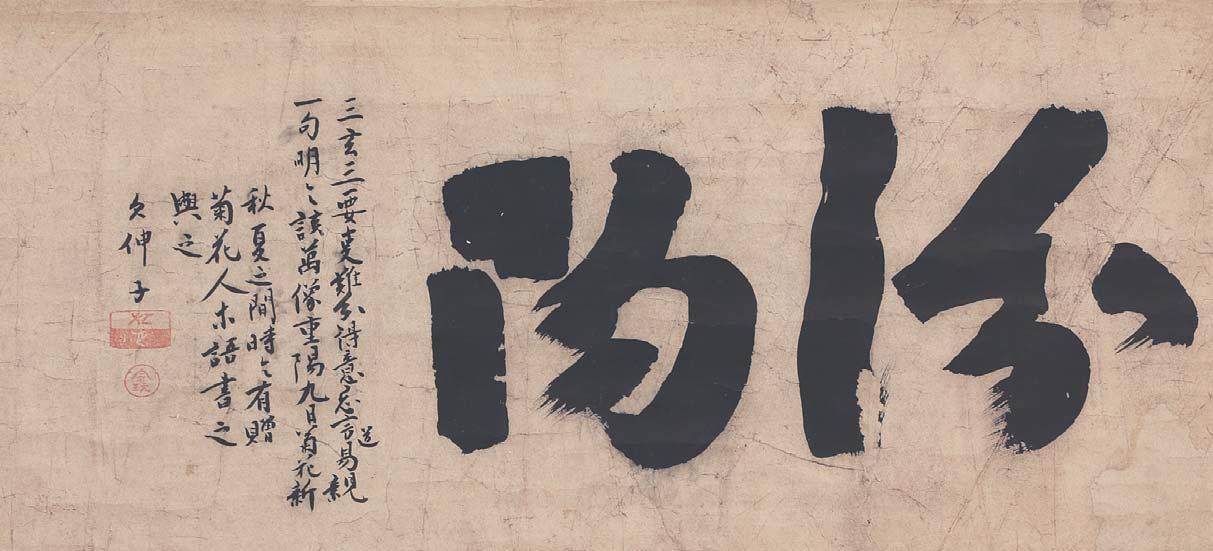 汾陽
三玄三要叓難分得意忘言道易親
一句明〻該萬像重陽九日菊花新
秋夏之間時〻有贈
菊花人 語書之
與之
欠伸子